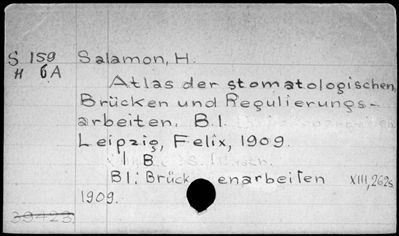 S 159 Salamon, H.
H 6A
Atlas der stomatologischen
Brücken und Regulierungs-
arbeiten. B.I.
Leipzig, Felix, 1909.
I B.
BI: Brück enarbeiten XIII, 262s.
1909.